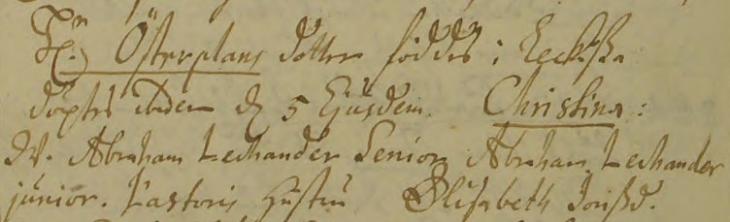 H:r Österplans dotter föddes i Leckißta
döptes ibidem d 5 Ejusdem. Christina:
W. Abraham Lechander Senior, Abraham Lechander
junior. Pastoris hustru Elisabeth Jonsd.